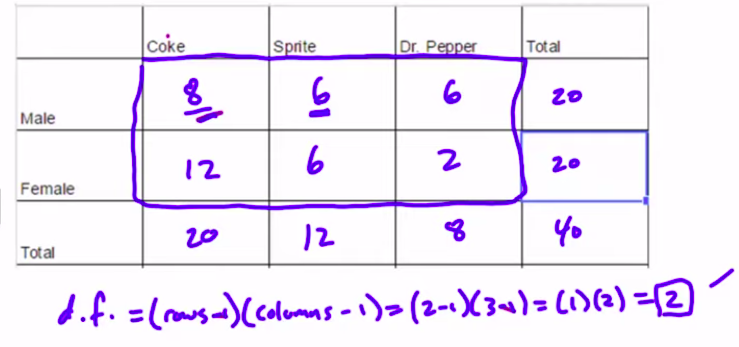 Coke Sprite Dr. Pepper Total
Male 8 6 6 20
Female 12 6 2 20
Total 20 12 8 40
d.f. = (rows-1)(columns-1) = (2-1)(3-1) = (1)(2) = 2